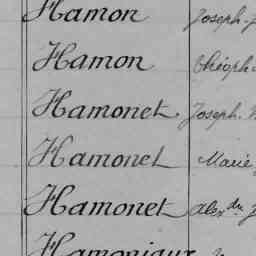 Hamon Joseph
Hamon Théoph
Hamonet Joseph
Hamonet Marie
Hamonet Alexdre
Hamoniaux